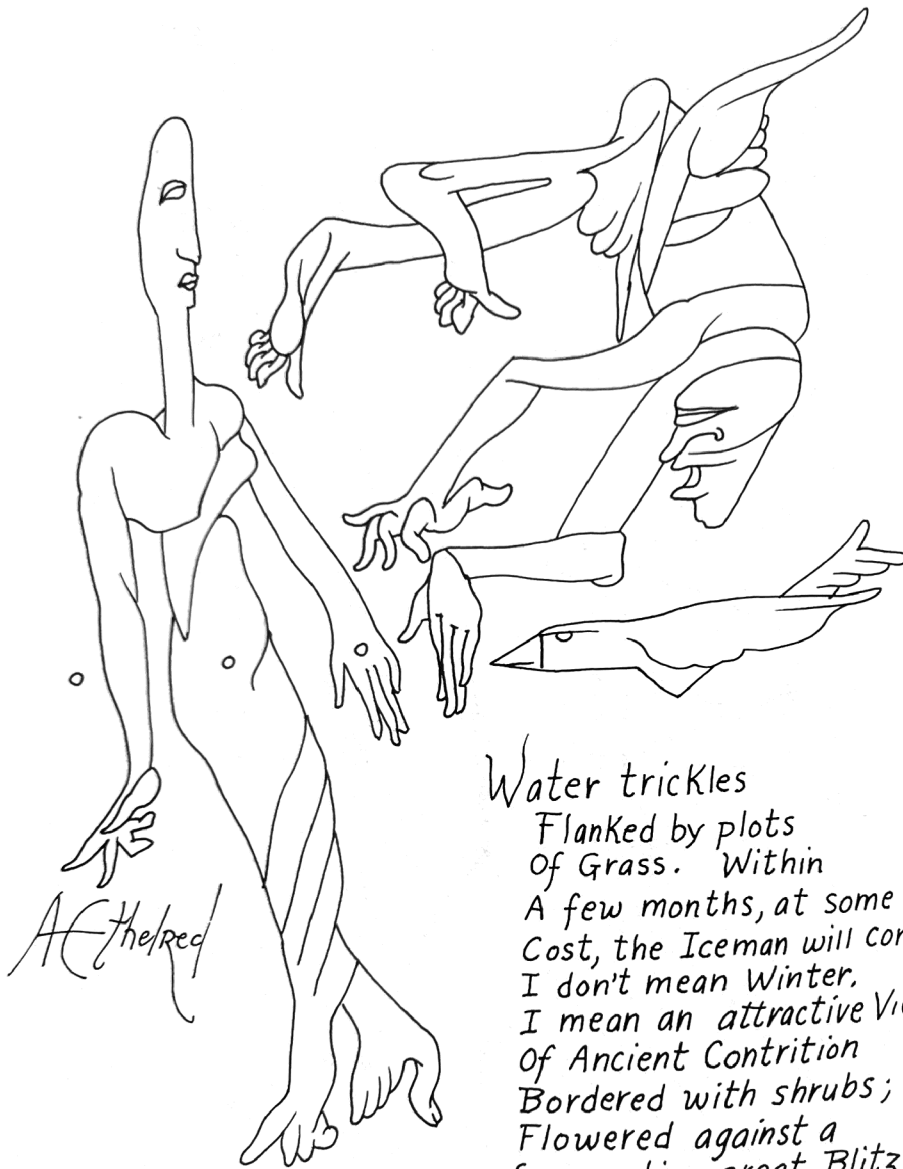 Water trickles
Flanked by plots
Of Grass. Within
A few months, at some
Cost, the Iceman will
I don't mean Winter.
I mean an attractive
Of Ancient Contrition
Bordered with shrubs;
Flowered against a
great Blitz
AEthelred